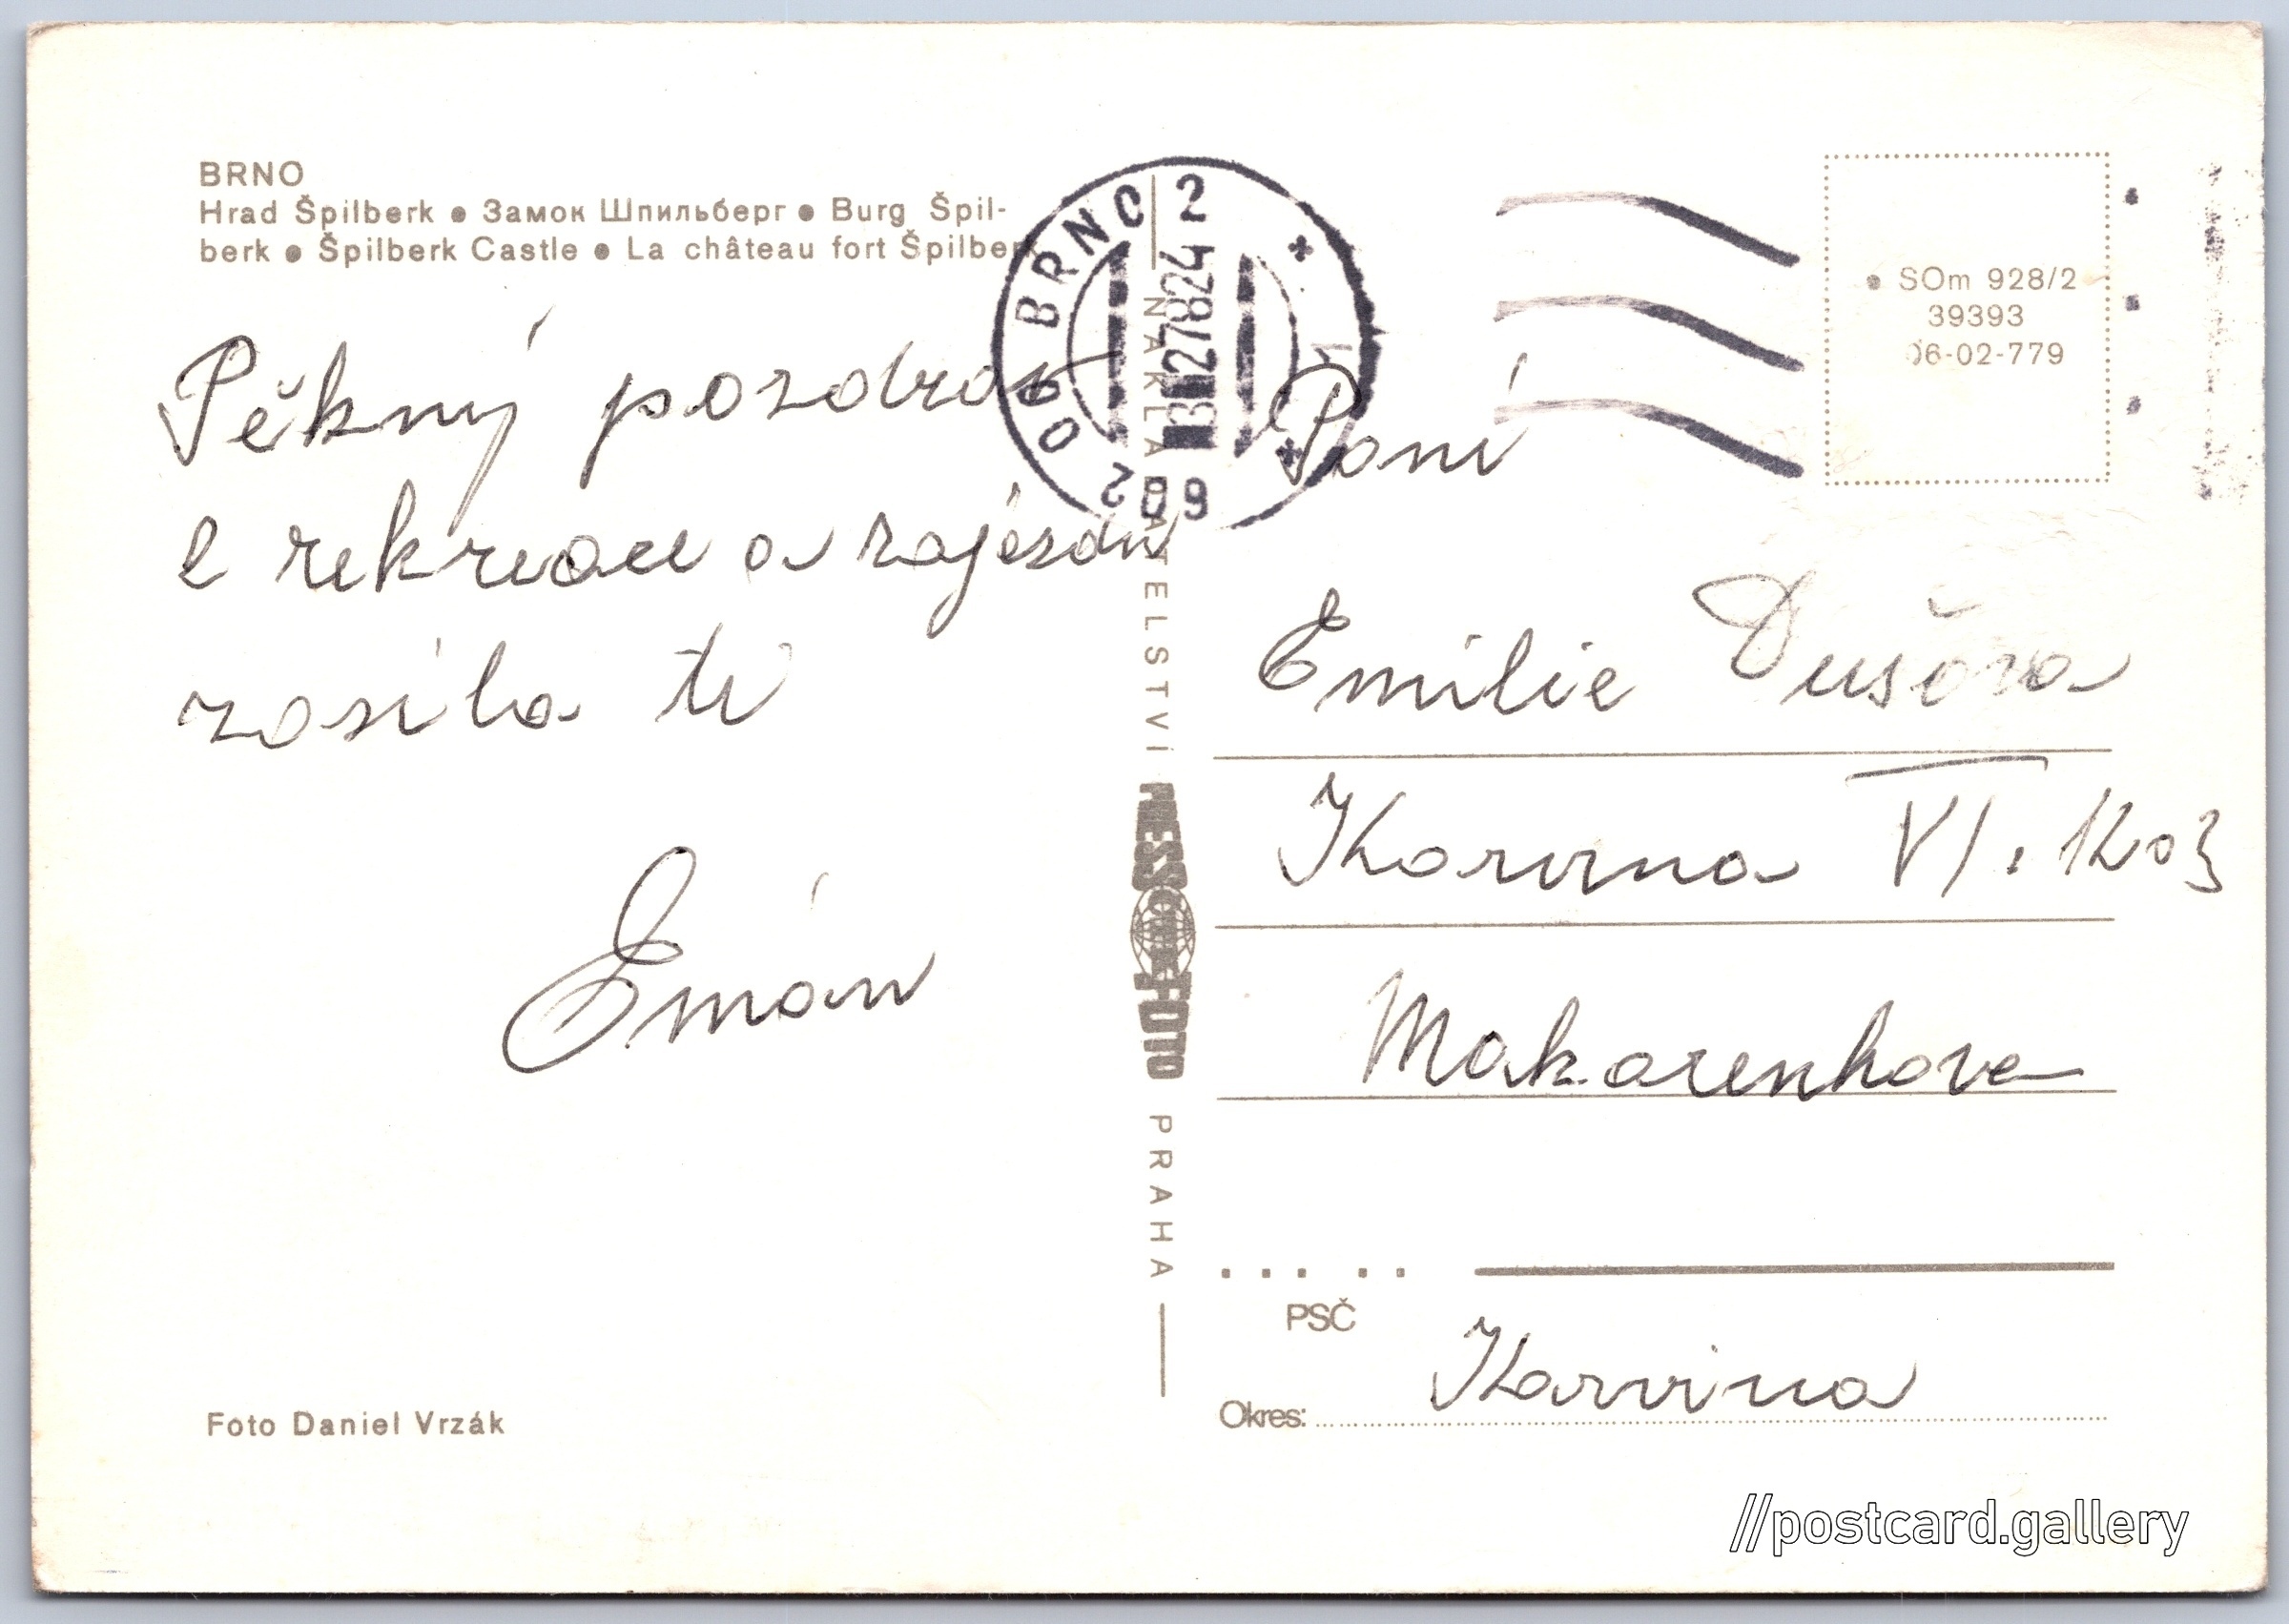 BRNO
Hrad Špilberk ● Замок Шпильберг ● Burg Špil-
berk ● Špilberk Castle ● La château fort Špilberk
Pěkný pozdrav
z rekreace a zájezdu
zasílá ti
Emán
Foto Daniel Vrzák
NAKLADATELSTVÍ
PRESSFOTO
PRAHA
602 00 BRNO 2
27.8.
● SOm 928/2
39393
06-02-779
Paní
Emilie
Karvina VI.
Makarenkova
PSČ
Okres: Karvina
//postcard.gallery